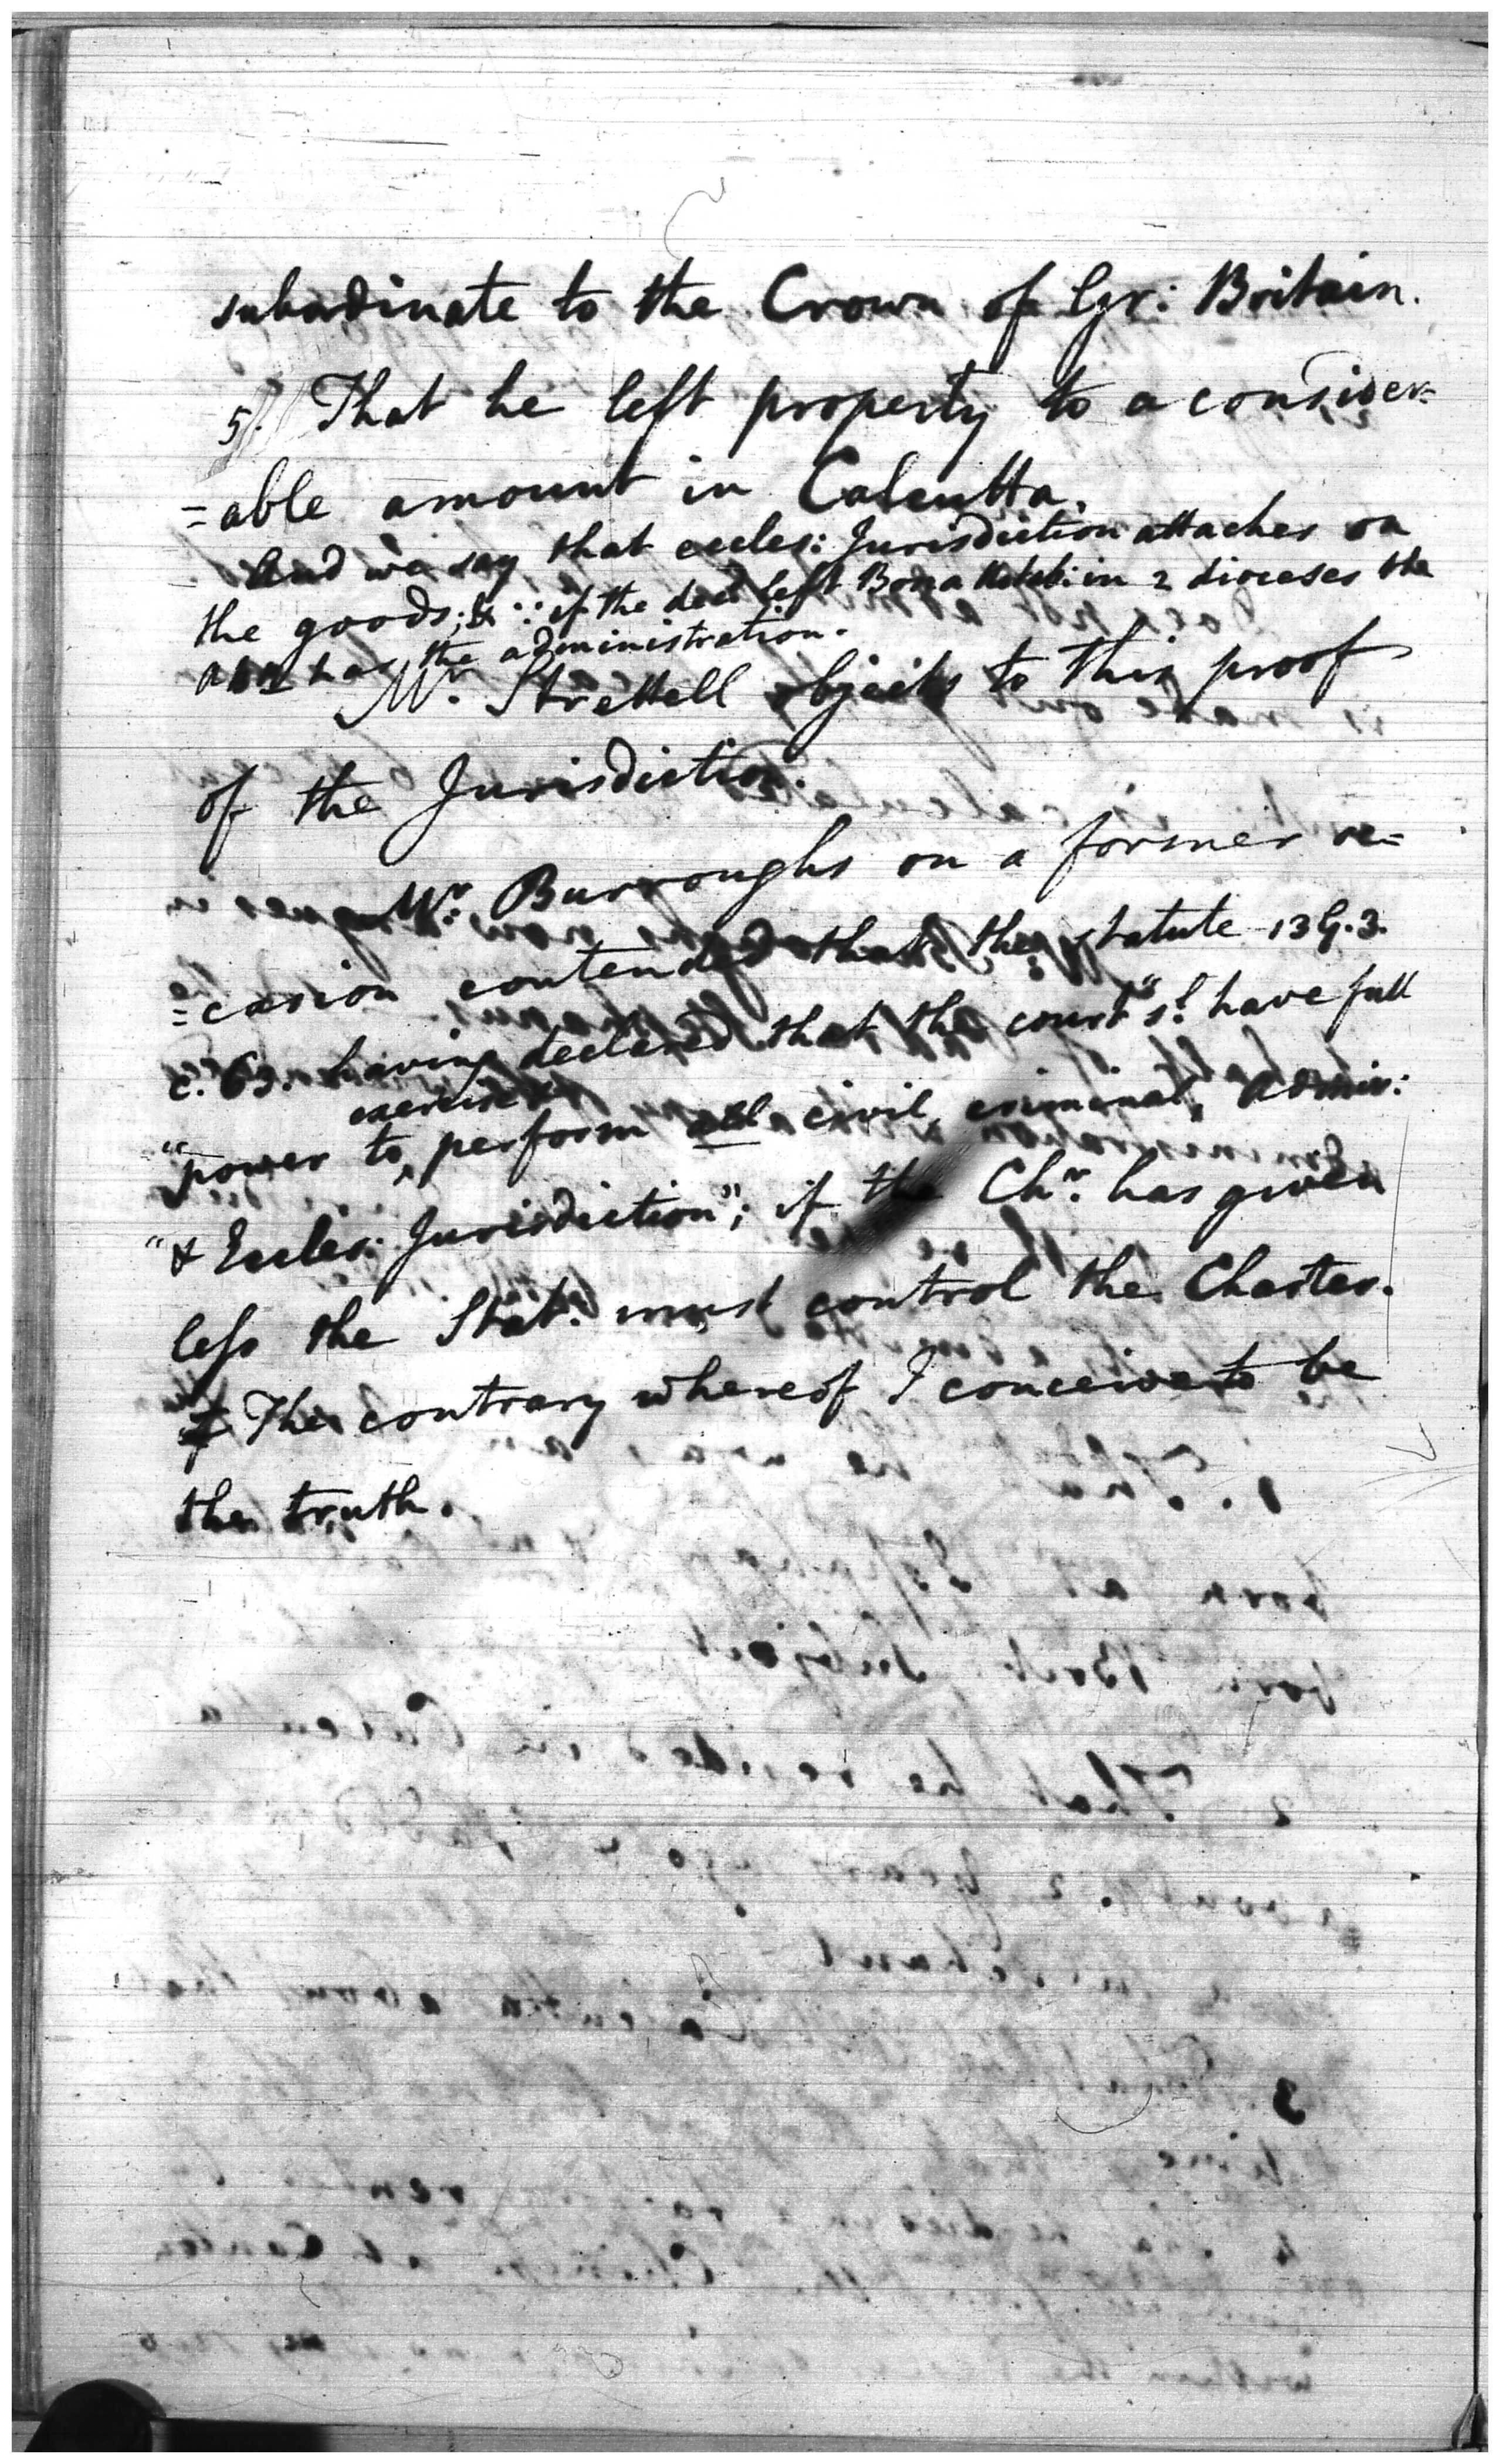 subordinate to the Crown of Gr: Britain.
5. That he left property to a consider=
=able amount in Calcutta.
And we say that eccles: Jurisdiction attaches on
the goods; & ∵ if the decd left Bona Notab: in 2 dioceses the
ABp has the administration.
Mr. Strettell objects to this proof
of the Jurisdiction.
Mr. Burroughs on a former oc=
=casion contended that the statute 13 G. 3.
c. 63. having declared that the court "sd. have full
exercise &
"power to, perform all civil, criminal, admir:
"& Eccles: Jurisdiction"; if the Chr. has given
less the Stat. must control the Charter.
The contrary whereof I conceive to be
the truth.